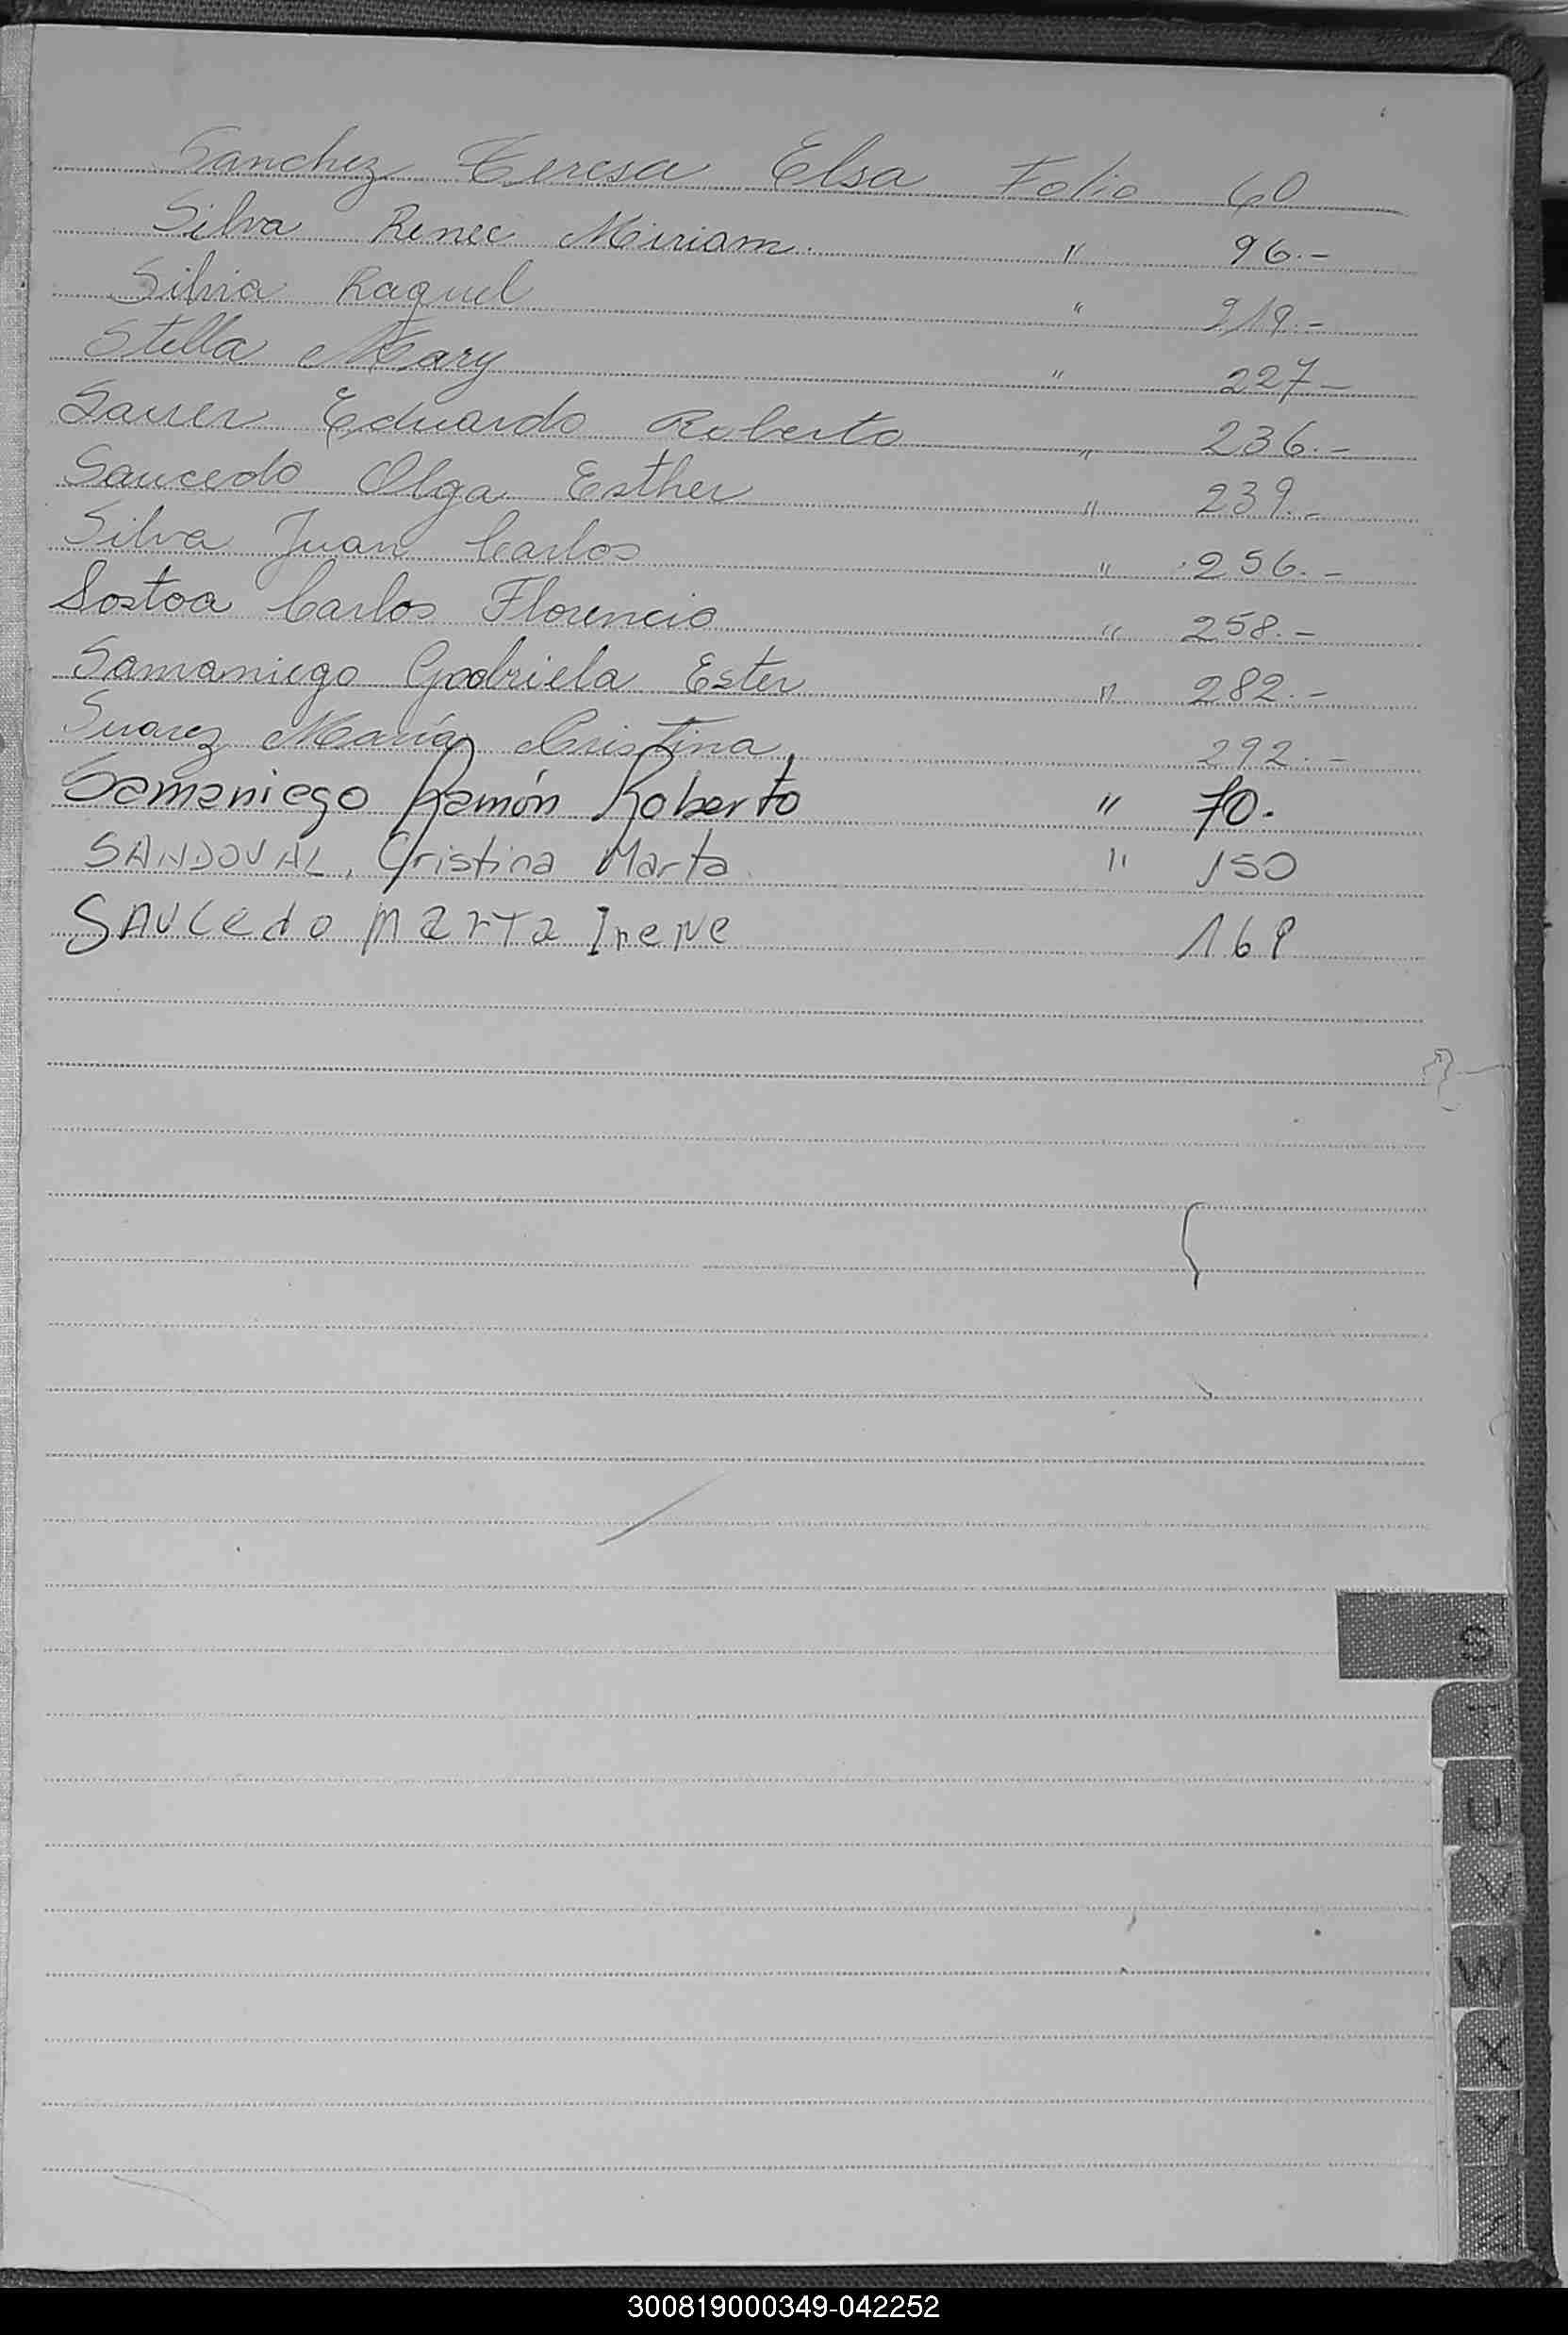 Sanchez Teresa Elsa Folio 60
Silva Renee Miriam. " 96.-
Silvia Raquel " 219.-
Stella Mary " 227-
Sauer Eduardo Roberto " 236.-
Saucedo Olga Esther " 239.-
Silva Juan Carlos " 256.-
Sostoa Carlos Florencio " 258.-
Samaniego Gabriela Ester " 282.-
Suarez María Cristina 292.-
Samaniego Ramón Roberto " 70.
SANDOVAL, Cristina Marta " 150
SAUCedo MarTa IreNe
S
U
V
W
X
Y
Z
300819000349-042252